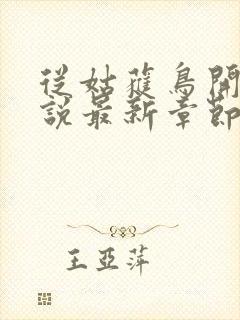 從姑蕥鳥開
說最新章節
王亞萍